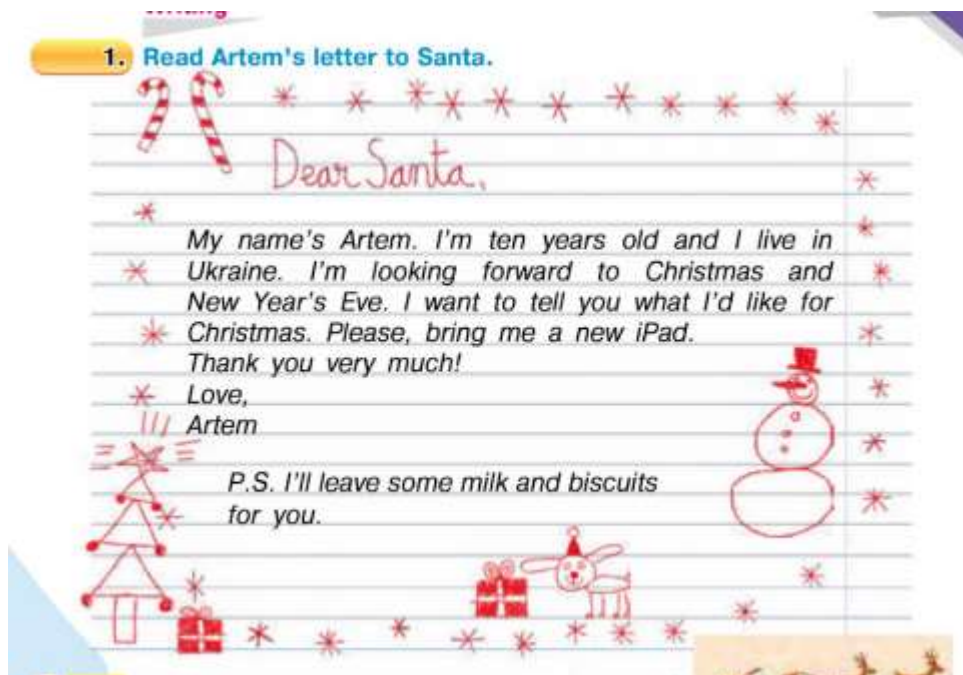 1. Read Artem's letter to Santa.
Dear Santa,
My name's Artem. I'm ten years old and I live in
Ukraine. I'm looking forward to Christmas and
New Year's Eve. I want to tell you what I'd like for
Christmas. Please, bring me a new iPad.
Thank you very much!
Love,
Artem
P.S. I'll leave some milk and biscuits
for you.